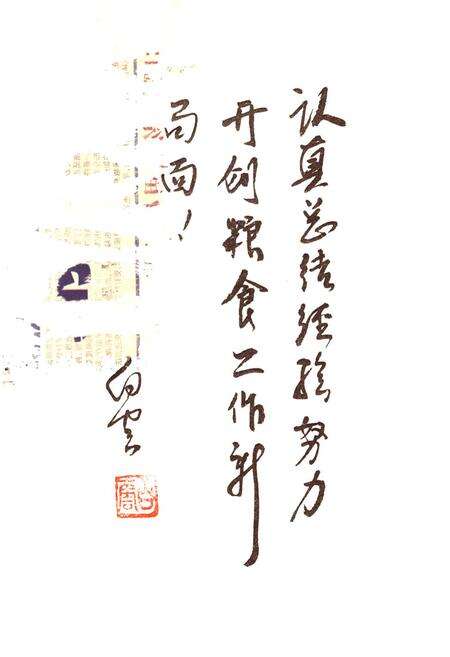 认真总结经验努力
开创粮食工作新
局面！
白云